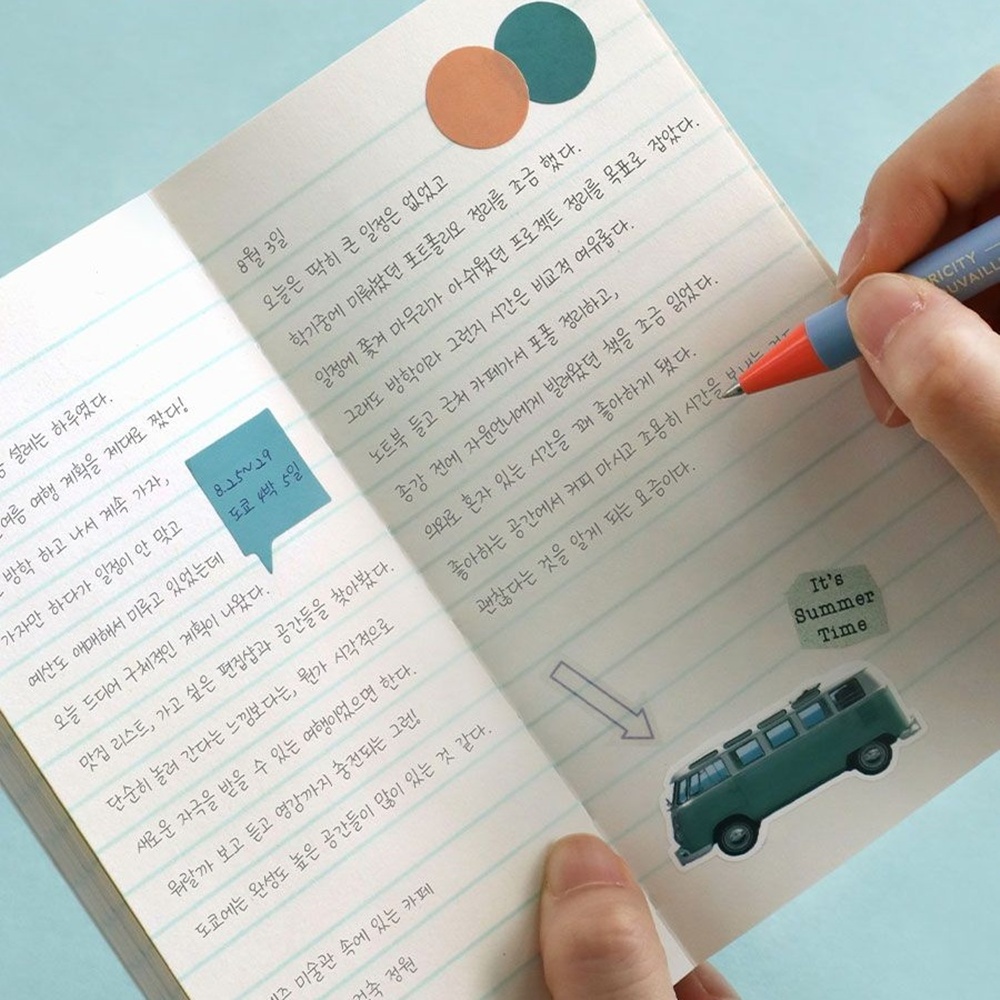 설레는 하루였다.
여름 여행 계획을 제대로 짰다!
방학 하고 나서 계속 가자,
가자만 하다가 일정이 안 맞고
예산도 애매해서 미루고 있었는데
오늘 드디어 구체적인 계획이 나왔다.
맛집 리스트, 가고 싶은 편집샵과 공간들을 찾아봤다.
단순히 놀러 간다는 느낌보다는, 뭔가 시각적으로
새로운 자극을 받을 수 있는 여행이었으면 한다.
뭐랄까 보고 듣고 영감까지 충전되는 그런!
도쿄에는 완성도 높은 공간들이 많이 있는 것 같다.
미술관 속에 있는 카페
정원
8.25~29
도쿄 4박 5일
8월 3일
오늘은 딱히 큰 일정은 없었고
학기중에 미뤄놨던 포트폴리오 정리를 조금 했다.
일정에 쫓겨 마무리가 아쉬웠던 프로젝트 정리를 목표로 잡았다.
그래도 방학이라 그런지 시간은 비교적 여유롭다.
노트북 들고 근처 카페가서 포폴 정리하고,
종강 전에 자윤언니에게 빌려왔던 책을 조금 읽었다.
의외로 혼자 있는 시간을 꽤 좋아하게 됐다.
좋아하는 공간에서 커피 마시고 조용히 시간을 보내는
괜찮다는 것을 알게 되는 요즘이다.
It's
Summer
Time